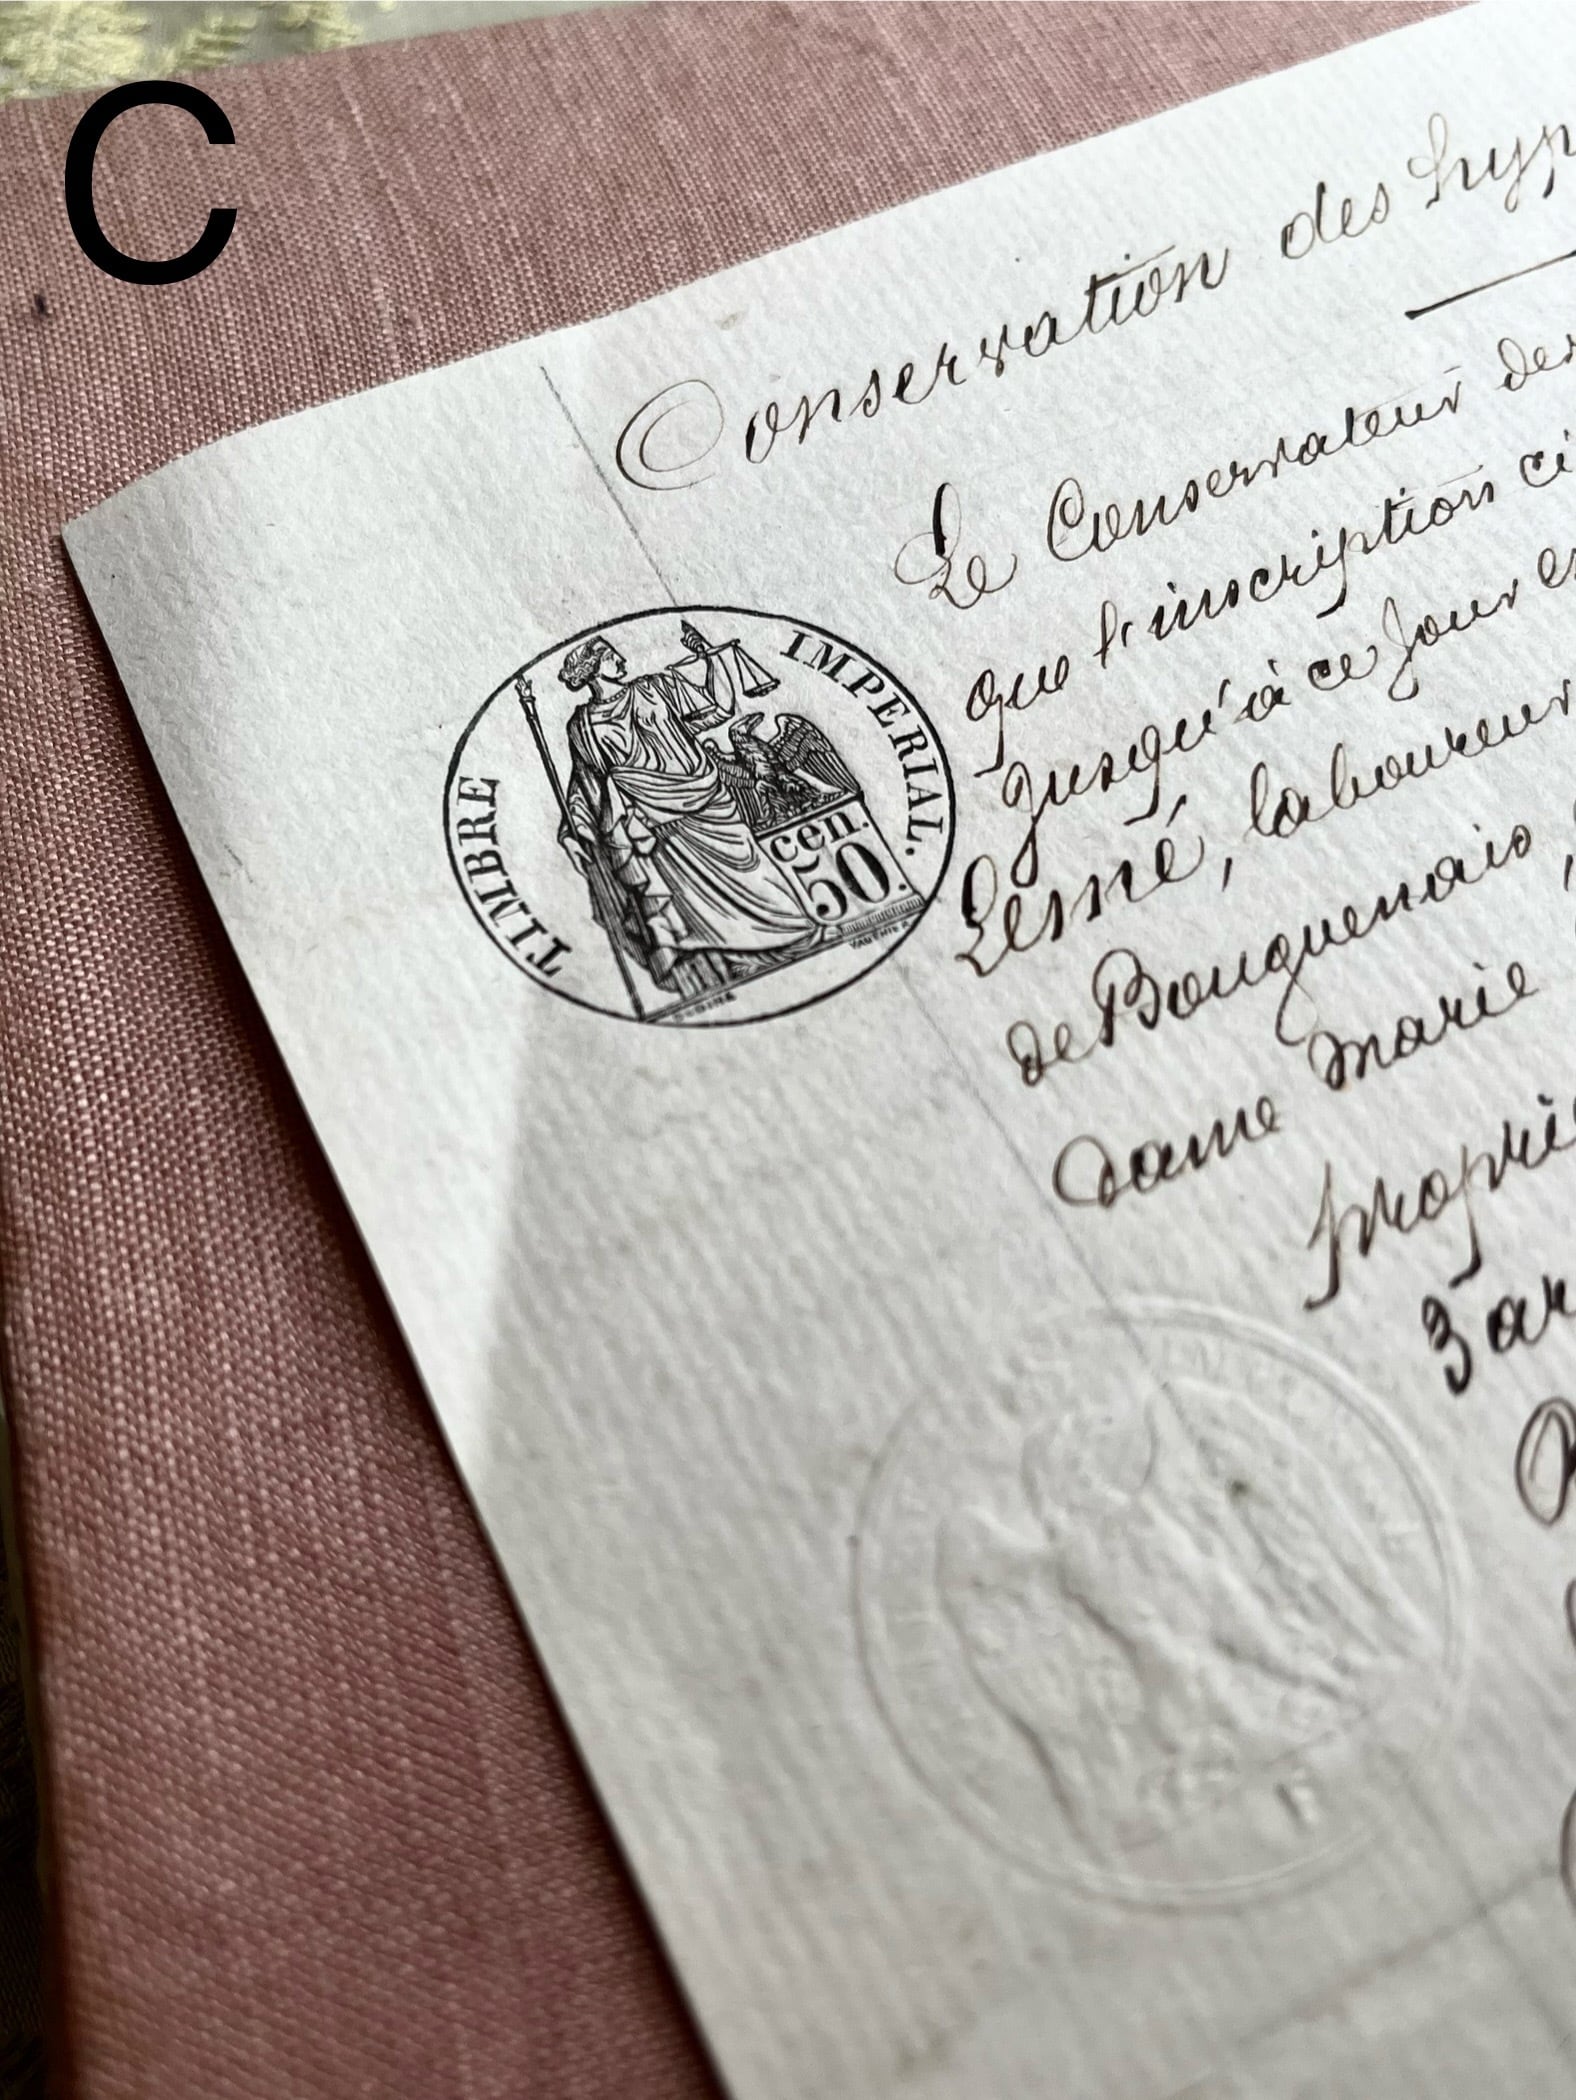 C
Conservation des hyp
Le Conservateur des
que l'inscription ci
jusqu'à ce jour
Lesné, laboureur
de Bouguenais,
dame Marie
proprié
3 ar
TIMBRE IMPERIAL.
cen.
50.